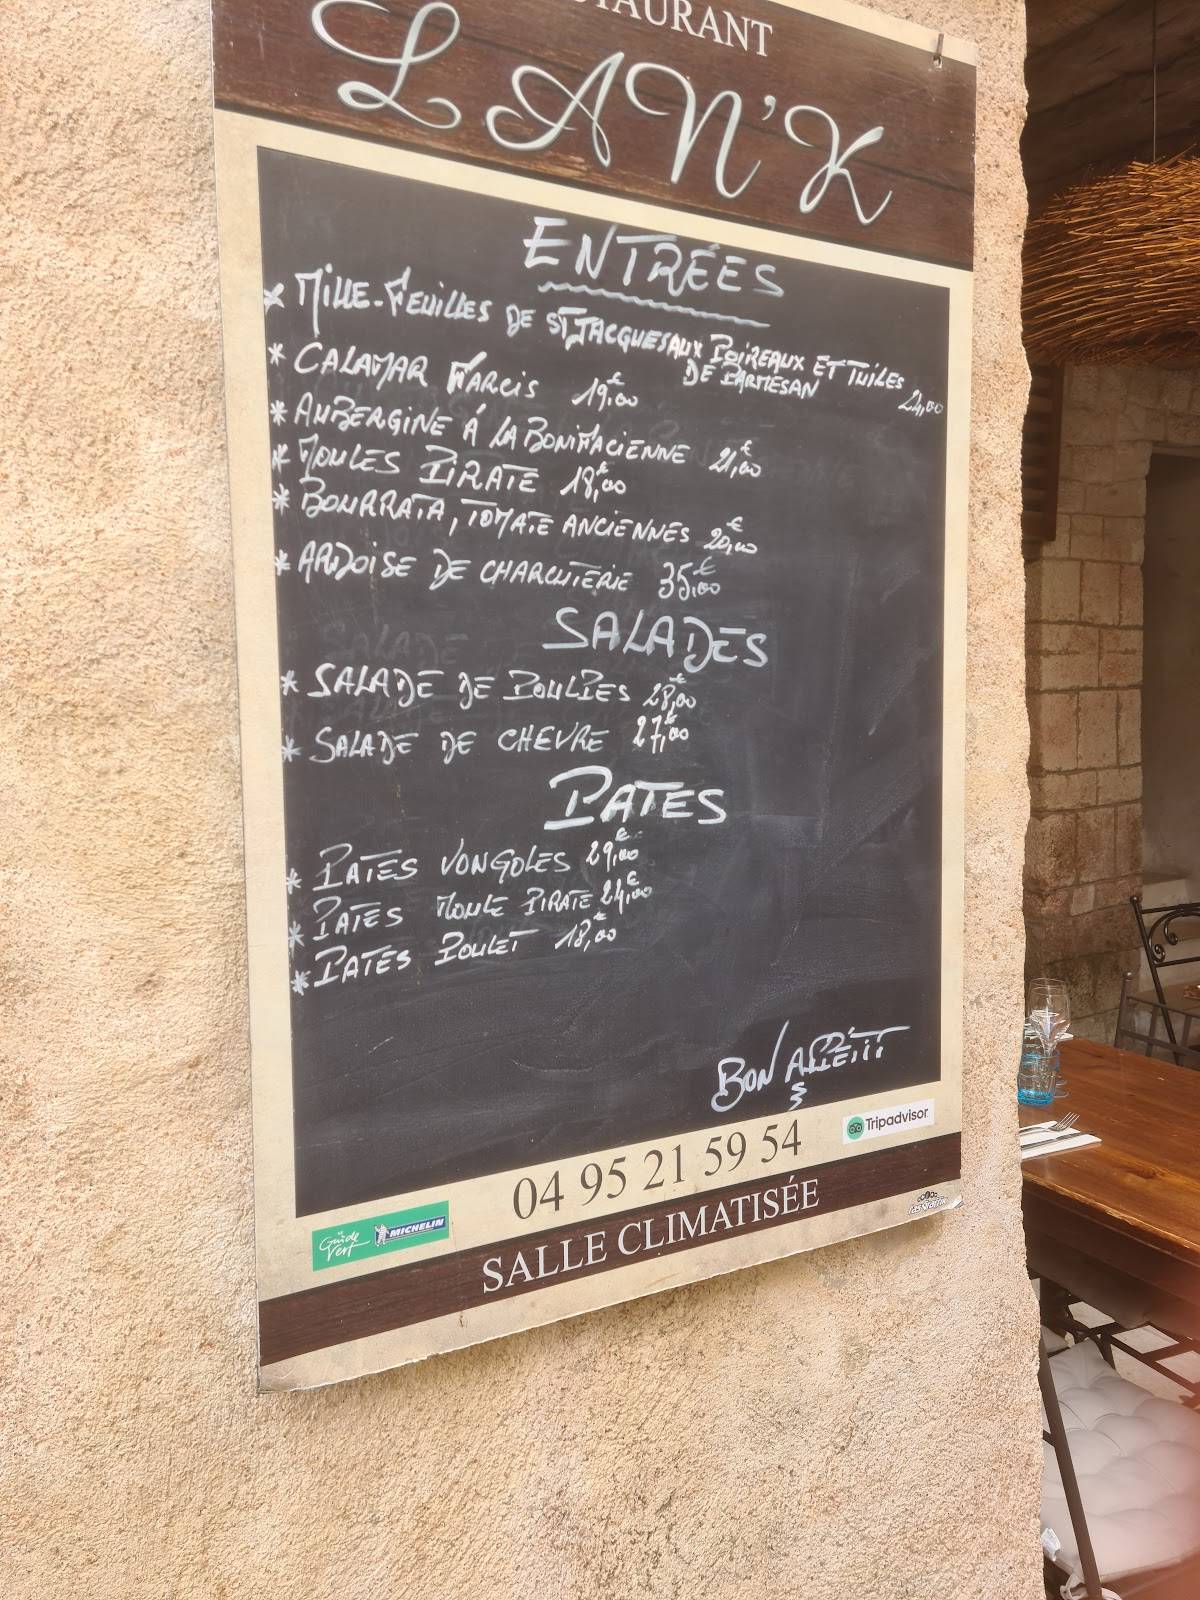 STAURANT
L'AN'K
ENTRÉES
* MILLE-FEUILLES DE ST JACQUES AUX POIREAUX ET TUILES
DE PARMESAN 24,00
* CALAMAR FARCIS 19,00€
* AUBERGINE À LA BONIFACIENNE 21,00€
* MOULES PIRATE 18,00€
* BOURRATA, TOMATE ANCIENNES 20,00€
* ARDOISE DE CHARCUTERIE 35,00€
SALADES
* SALADE DE POULPES 28,00€
* SALADE DE CHEVRE 27,00€
PATES
* PATES VONGOLES 29,00€
* PATES MOULE PIRATE 24,00€
* PATES POULET 18,00€
BON APPÉTIT
Tripadvisor
04 95 21 59 54
Le Guide Vert MICHELIN
SALLE CLIMATISÉE